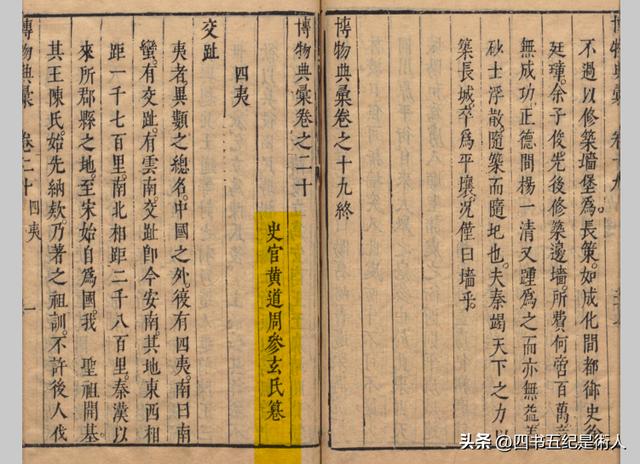 博物典彙 卷十九
不過以修築墻堡為長策。如成化間都御史
廷瓚。余子俊先後修築邊墻。所費何啻百萬。
無成功。正德間楊一清又踵為之。而亦無益。
砂土浮散。隨築而隨圮也。夫秦竭天下之力以
築長城。卒為平壤。况僅曰墻乎。
博物典彙卷之十九終
博物典彙卷之二十
史官黃道周參玄氏纂
四夷
交趾
夷者異類之總名。中國之外。彼有四夷。南曰南
蠻。有交趾。有雲南。交趾即今安南。其地東西相
距一千七百里。南北相距二千八百里。秦漢以
來所郡縣之地。至宋始自為國。我 聖祖開基。
其王陳氏。始先納欵。乃著之祖訓。不許後人伐
博物典彙 卷二十 四夷 一
头条 @四书五纪是術人